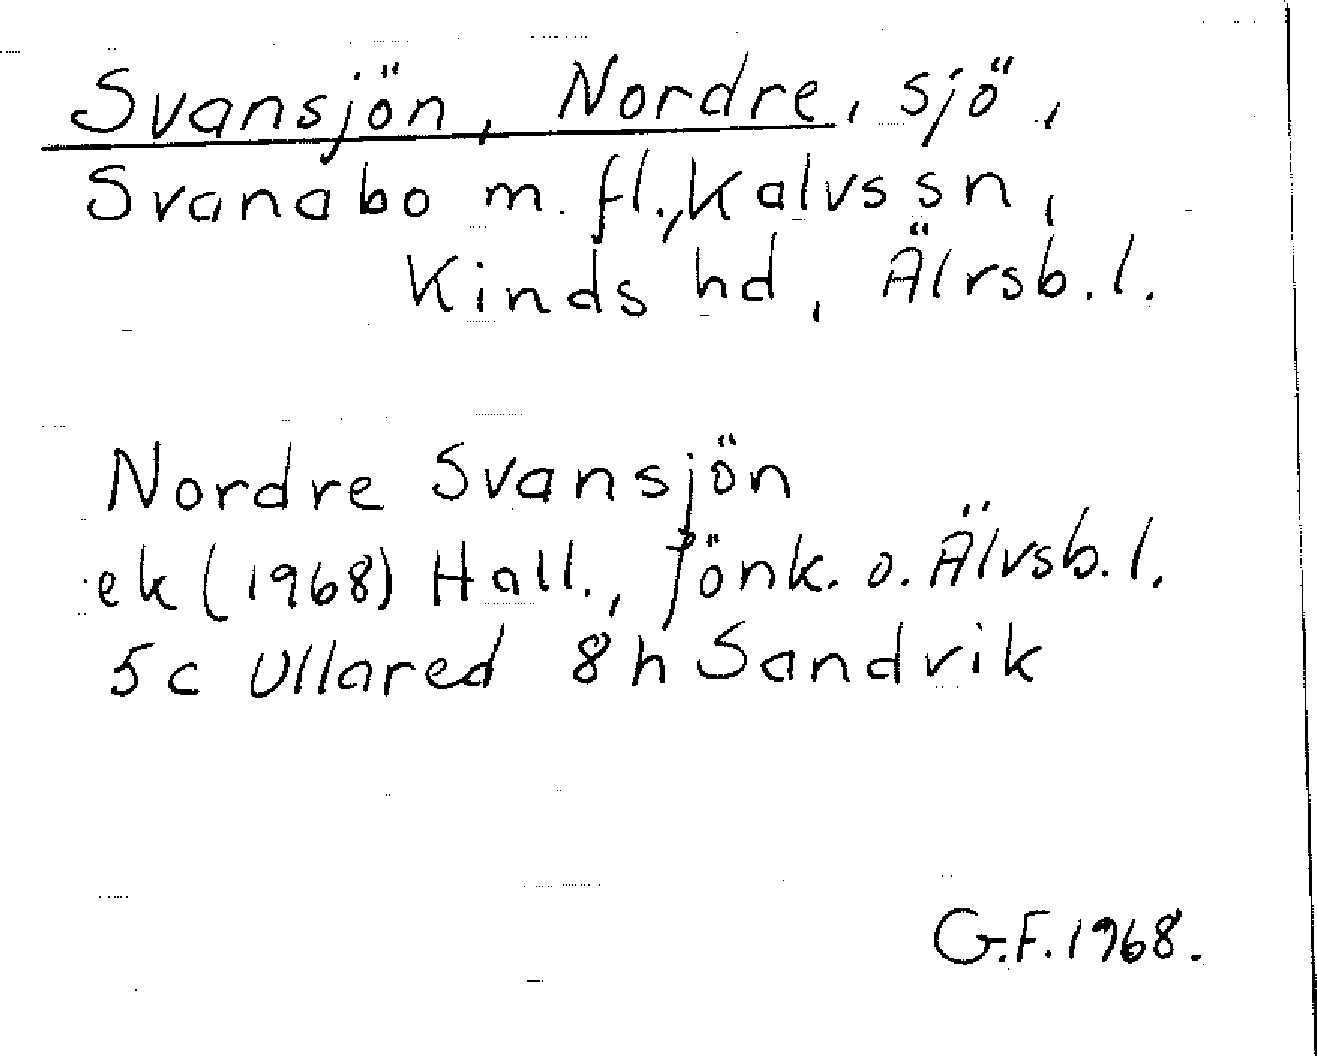 Svansjön, Nordre, sjö,
Svanabo m. fl., Kalvs sn,
Kinds hd, Älrsb. l.
Nordre Svansjön
ek (1968) Hall., Jönk. o. Älvsb. l.
5c Ullared 8h Sandvik
G.F. 1968.